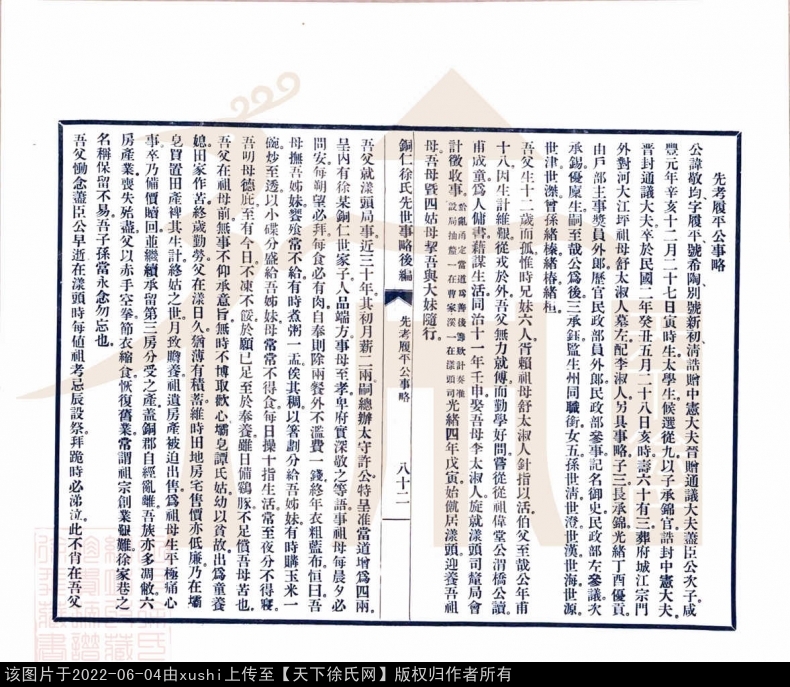 先考履平公事略
公諱敬均字履平號希陶別號新初清誥贈中憲大夫晉贈通議大夫藎臣公次子咸
豐元年辛亥十二月二十七日寅時生太學生候選從九以子承錦官誥封中憲大夫
晉封通議大夫卒於民國二年癸丑五月二十八日亥時壽六十有三葬府城江宗門
外對河大江坪祖母舒太淑人墓左配李淑人另具事略子三長承錦光緒丁酉優貢
由戶部主事獎員外郎歷官民政部員外郎民政部參事記名御史民政部左參議次
承錫優廩生嗣至哉公為後三承鈺監生州同職銜女五孫世清世澄世漢世海世源
世津世濴曾孫緒榛緒椿緒桓
吾父生十二歲而孤惟時兄妹六人胥賴祖母舒太淑人針指以活伯父至哉公年甫
十八因生計維艱從戎於外吾父無力就傅而勤學好問嘗從從祖偉堂公渭橋公讀
甫成童為人傭書藉謀生活同治十一年壬申娶吾母李太淑人旋就漾頭司釐局會
計徵收事光緒四年戊寅始僦居漾頭迎養吾祖
母吾母暨四姑母挈吾與大妹隨行
銅仁徐氏先世事略後編
先考履平公事略
八十二
吾父就漾頭局事近三十年其初月薪二兩嗣總辦太守許公特呈准當道增為四兩
呈內有徐某銅仁世家子人品端方事母至孝卑府實深敬之等語事祖母每晨夕必
問安每朔望必拜每食必有肉自奉則除兩餐外不濫費一錢終年衣粗藍布恒曰吾
母撫吾姊妹饔飧常不給有時煮粥一盂俟其稠以箸劃分給吾姊妹有時購玉米一
碗炒至透以小碟分盛給吾姊妹母常常不得食每日操十指生活常至夜分不得寢
吾明母德庇至有今日不凍不餒於願已足至於奉養雖日備鷄豚不足償吾母苦也
吾父在祖母前無事不仰承意旨無時不博取歡心壩皂譚氏姑幼以貧故出為童養
媳田家作苦終歲勤勞父在漾日久猶薄有積蓄維時田地房宅售價亦低廉乃在壩
皂買置田產裨其生計終姑之世月致贍養祖遺房產被迫出售為祖母生平極痛心
事卒乃備價贖回並繼續承留第三房分受之產蓋銅郡自經亂離吾族亦多凋敝六
房產業喪失殆盡父以赤手空拳節衣縮食恢復舊業常謂祖宗創業艱難徐家巷之
名稱保留不易吾子孫當永念勿忘也
吾父慟念藎臣公早逝在漾頭時每値祖考忌辰設祭拜跪時必涕泣此不肖在吾父
该图片于2022-06-04由xushi上传至【天下徐氏网】版权归作者所有